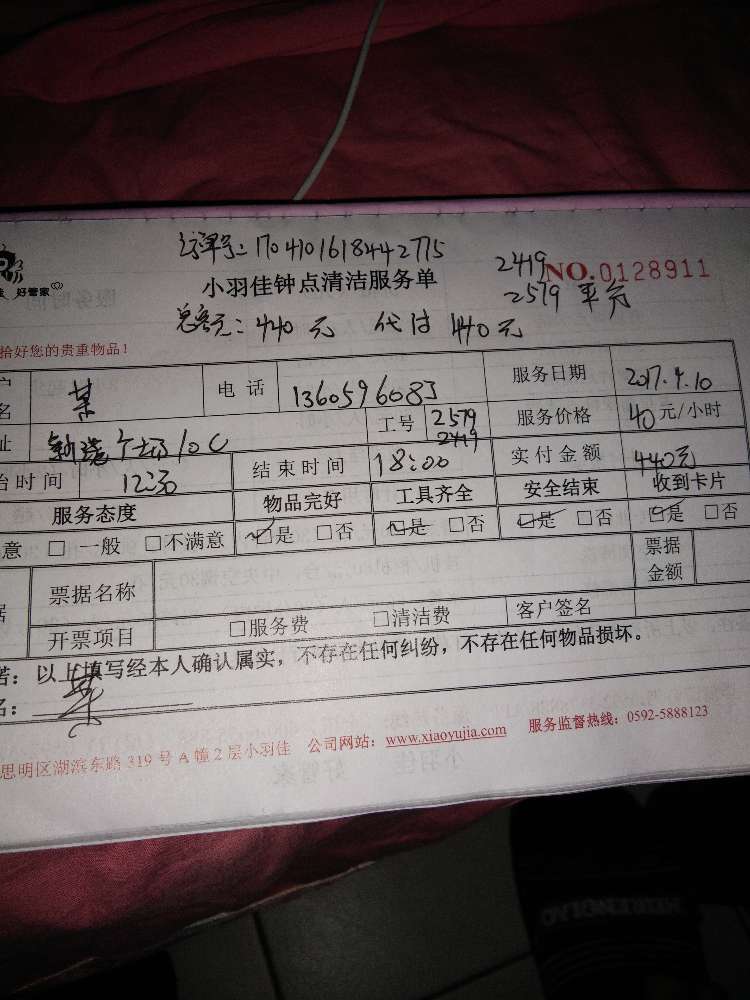 订单号:170410161844 2775
好管家
小羽佳钟点清洁服务单
2419
NO.0128911
2579 平分
总金额:440元 代付440元
拾好您的贵重物品!
户名 某 电话 1360596083 服务日期 2017.4.10
址 广场10C 工号 2579 2419 服务价格 40元/小时
始时间 12:30 结束时间 18:00 实付金额 440元
服务态度 物品完好 工具齐全 安全结束 收到卡片
意 □一般 □不满意 ☑是 □否 ☑是 □否 ☑是 □否 ☑是 □否
据 票据名称 票据金额
开票项目 □服务费 □清洁费 客户签名
诺:以上填写经本人确认属实,不存在任何纠纷,不存在任何物品损坏。
名:某
思明区湖滨东路319号A幢2层小羽佳 公司网站:www.xiaoyujia.com 服务监督热线:0592-5888123